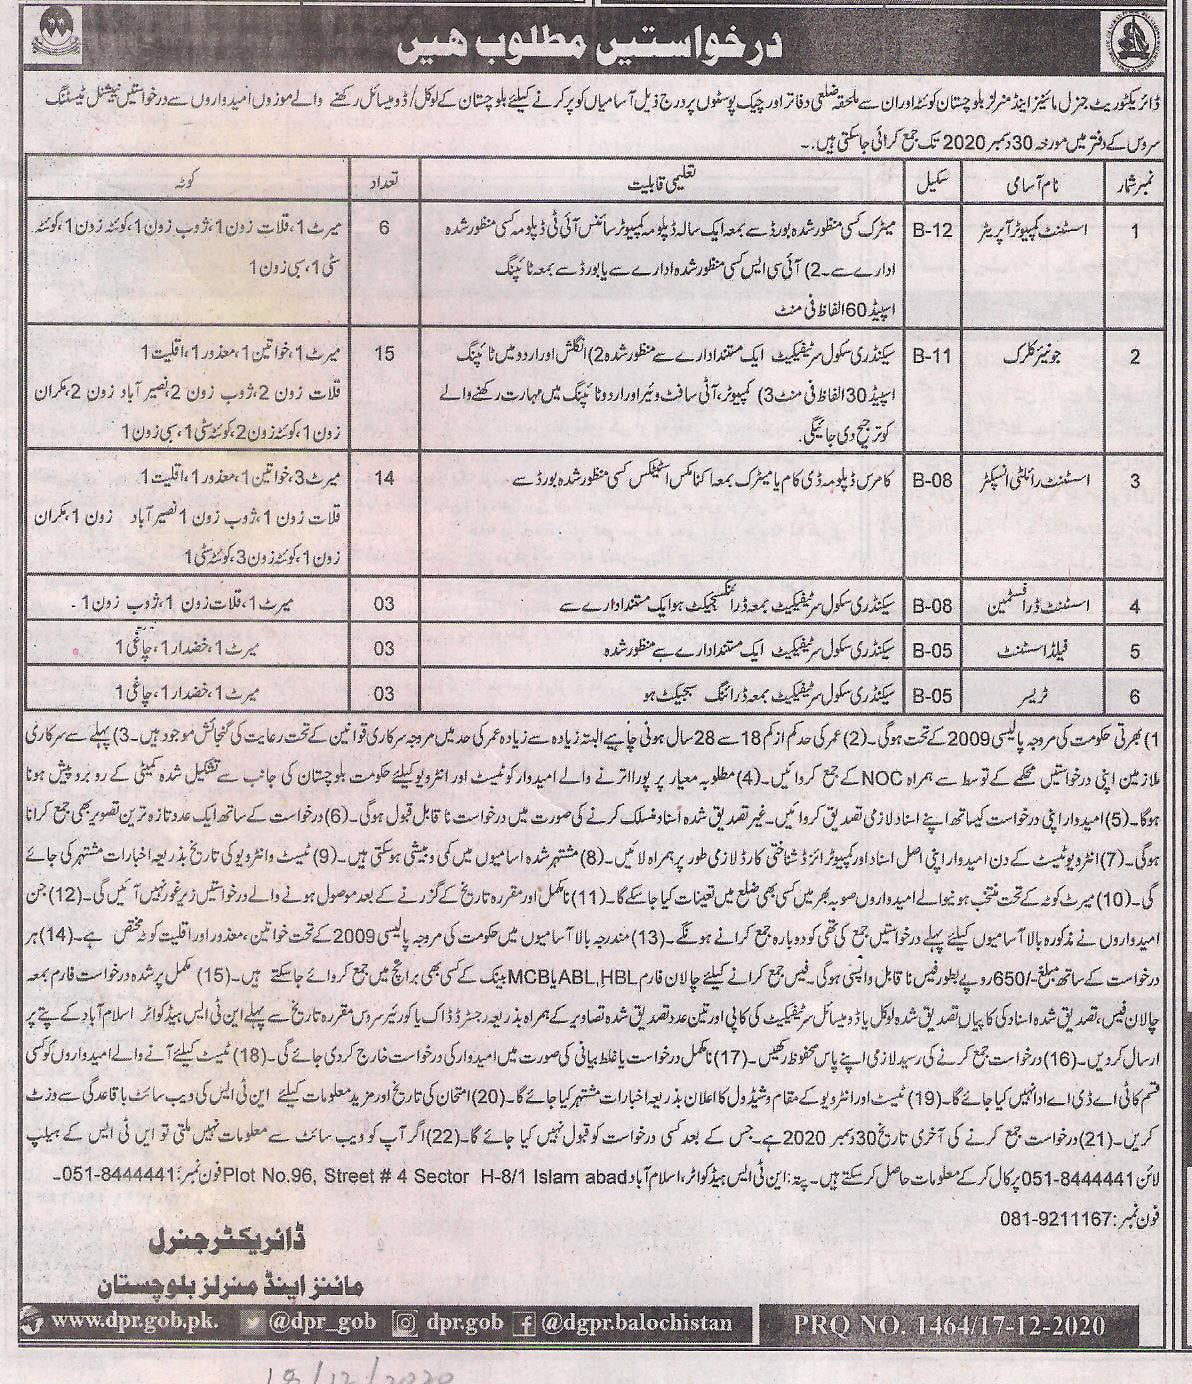 درخواستیں مطلوب ھیں
ڈائریکٹوریٹ جنرل مائنیز اینڈ منرلز بلوچستان کوئٹہ اور ان سے ملحقہ ضلعی دفاتر اور چیک پوسٹوں پر درج ذیل آسامیاں کو پر کرنے کیلئے بلوچستان کے لوکل/ڈومیسائل رکھنے والے موزوں امیدواروں سے درخواستیں نیشنل ٹیسٹنگ
سروس کے دفتر میں مورخہ 30 دسمبر 2020 تک جمع کرائی جاسکتی ہیں۔
نمبر شمار نام آسامی سکیل تعلیمی قابلیت تعداد کوٹہ
1 اسسٹنٹ کمپیوٹر آپریٹر B-12 میٹرک کسی منظور شدہ بورڈ سے بمعہ ایک سالہ ڈپلومہ کمپیوٹر سائنس آئی ٹی ڈپلومہ کسی منظور شدہ 6 میرٹ 1، قلات زون 1، ژوب زون 1، کوئٹہ زون 1، کوئٹہ
ادارے سے۔ 2) آئی سی ایس کسی منظور شدہ ادارے سے یا بورڈ سے بمعہ ٹائپنگ سٹی 1، سبی زون 1
اسپیڈ 60 الفاظ فی منٹ
2 جونیئر کلرک B-11 سیکنڈری سکول سرٹیفیکیٹ ایک مستند ادارے سے منظور شدہ 2) انگلش اور اردو میں ٹائپنگ 15 میرٹ 1، خواتین 1، معذور 1، اقلیت 1
اسپیڈ 30 الفاظ فی منٹ 3) کمپیوٹر، آئی سافٹ وئیر اور اردو ٹائپنگ میں مہارت رکھنے والے قلات زون 2، ژوب زون 2، نصیر آباد زون 2، مکران
کو ترجیح دی جائیگی۔ زون 1، کوئٹہ زون 2، کوئٹہ سٹی 1، سبی زون 1
3 اسسٹنٹ رائلٹی انسپکٹر B-08 کامرس ڈپلومہ ڈی کام یا میٹرک بمعہ اکنامکس اسٹیٹکس کسی منظور شدہ بورڈ سے 14 میرٹ 3، خواتین 1، معذور 1، اقلیت 1
قلات زون 1، ژوب زون 1 نصیر آباد زون 1، مکران
زون 1، کوئٹہ زون 3، کوئٹہ سٹی 1
4 اسسٹنٹ ڈرافسٹمین B-08 سیکنڈری سکول سرٹیفیکیٹ بمعہ ڈرائنگ سبجیکٹ ہو ایک مستند ادارے سے 03 میرٹ 1، قلات زون 1، ژوب زون 1۔
5 فیلڈ اسسٹنٹ B-05 سیکنڈری سکول سرٹیفیکیٹ ایک مستند ادارے سے منظور شدہ 03 میرٹ 1، خضدار 1، چاغی 1
6 ٹریسر B-05 سیکنڈری سکول سرٹیفیکیٹ بمعہ ڈرائنگ سبجیکٹ ہو 03 میرٹ 1، خضدار 1، چاغی 1
1) بھرتی حکومت کی مروجہ پالیسی 2009 کے تحت ہوگی۔ (2) عمر کی حد کم از کم 18 سے 28 سال ہونی چاہیے البتہ زیادہ سے زیادہ عمر کی حد میں مروجہ سرکاری قوانین کے تحت رعایت کی گنجائش موجود ہیں۔ 3) پہلے سے سرکاری
ملازمین اپنی درخواستیں محکمے کے توسط سے ہمراہ NOC کے جمع کروائیں۔ (4) مطلوبہ معیار پر پورا اترنے والے امیدوار کو ٹیسٹ اور انٹرویو کیلئے حکومت بلوچستان کی جانب سے تشکیل شدہ کمیٹی کے روبرو پیش ہونا
ہوگا۔ (5) امیدوار اپنی درخواست کیساتھ اپنے اسناد لازمی تصدیق کروائیں۔ غیر تصدیق شدہ اسناد منسلک کرنے کی صورت میں درخواست ناقابل قبول ہوگی۔ (6) درخواست کے ساتھ ایک عدد تازہ ترین تصویر بھی جمع کرانا
ہوگی۔ (7) انٹرویو ٹیسٹ کے دن امیدوار اپنی اصل اسناد اور کمپیوٹرائزڈ شناختی کارڈ لازمی طور پر ہمراہ لائیں۔ (8) مشتہر شدہ اسامیوں میں کمی و بیشی ہوسکتی ہیں۔ (9) ٹیسٹ و انٹرویو کی تاریخ بذریعہ اخبارات مشتہر کی جائے
گی۔ (10) میرٹ کوٹہ کے تحت منتخب ہونیوالے امیدواروں صوبہ بھر میں کسی بھی ضلع میں تعینات کیا جاسکے گا۔ (11) نامکمل اور مقررہ تاریخ کے گزرنے کے بعد موصول ہونے والے درخواستیں زیر غور نہیں آئیں گی۔ (12) جن
امیدواروں نے مذکورہ بالا آسامیوں کیلئے پہلے درخواستیں جمع کی تھی کو دوبارہ جمع کرانے ہونگے۔ (13) مندرجہ بالا آسامیوں میں حکومت کی مروجہ پالیسی 2009 کے تحت خواتین، معذور اور اقلیت کوٹہ مختص ہے۔ (14) ہر
درخواست کے ساتھ مبلغ -/650 روپے بطور فیس ناقابل واپسی ہوگی۔ فیس جمع کرانے کیلئے چالان فارم ABL, HBL یا MCB بینک کے کسی بھی برانچ میں جمع کروائے جاسکتے ہیں۔ (15) مکمل پر شدہ درخواست فارم بمعہ
چالان فیس، تصدیق شدہ اسناد کی کاپیاں تصدیق شدہ لوکل یا ڈومیسائل سرٹیفکیٹ کی کاپی اور تین عدد تصدیق شدہ تصاویر کے ہمراہ بذریعہ رجسٹرڈ ڈاک یا کورئیر سروس مقررہ تاریخ سے پہلے این ٹی ایس ہیڈ کواٹر اسلام آباد کے پتے پر
ارسال کردیں۔ (16) درخواست جمع کرنے کی رسید لازمی اپنے پاس محفوظ رکھیں۔ (17) نامکمل درخواست یا غلط بیانی کی صورت میں امیدوار کی درخواست خارج کردی جائے گی۔ (18) ٹیسٹ کیلئے آنے والے امیدواروں کو کسی
قسم کا ٹی اے ڈی اے ادا نہیں کیا جائے گا۔ (19) ٹیسٹ اور انٹرویو کے مقام و شیڈول کا اعلان بذریعہ اخبارات مشتہر کیا جائے گا۔ (20) امتحان کی تاریخ اور مزید معلومات کیلئے این ٹی ایس کی ویب سائٹ باقاعدگی سے وزٹ
کریں۔ (21) درخواست جمع کرنے کی آخری تاریخ 30 دسمبر 2020 ہے۔ جس کے بعد کسی درخواست کو قبول نہیں کیا جائے گا۔ (22) اگر آپ کو ویب سائٹ سے معلومات نہیں ملتی تو این ٹی ایس کے ہیلپ
لائن 051-8444441 پر کال کرکے معلومات حاصل کرسکتے ہیں۔ پتہ: این ٹی ایس ہیڈ کواٹر، اسلام آباد Plot No.96, Street # 4 Sector H-8/1 Islam abad فون نمبر: 051-8444441۔
فون نمبر: 081-9211167
ڈائریکٹر جنرل
مائنز اینڈ منرلز بلوچستان
www.dpr.gob.pk. @dpr_gob dpr.gob @dgpr.balochistan PRQ NO. 1464/17-12-2020
18/12/2020